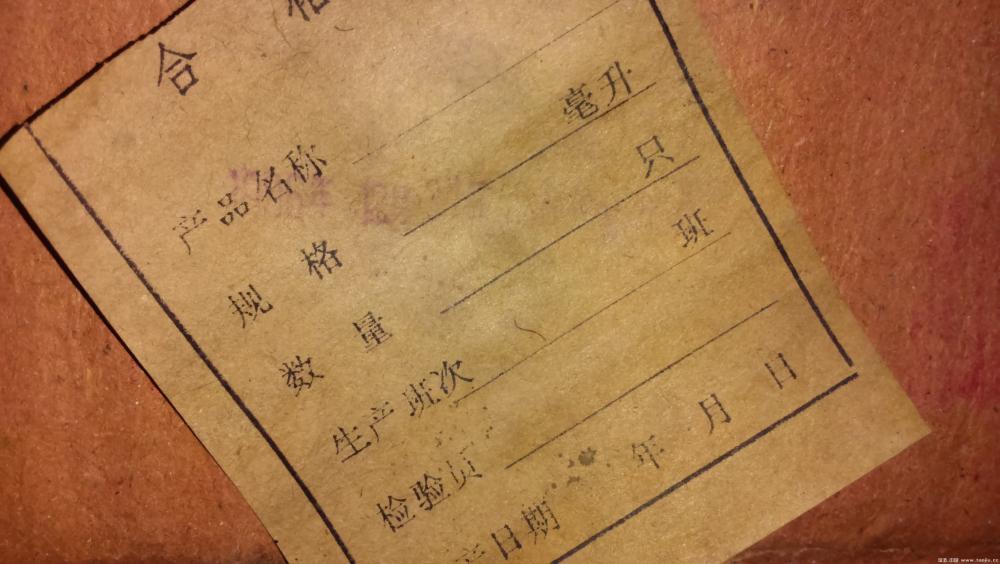 合 格
产品名称
规 格 毫升
数 量 只
生产班次 班
检验员
产日期 年 月 日